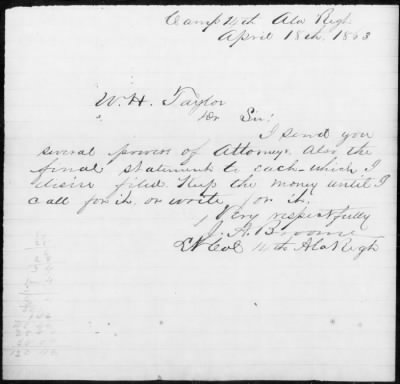 Camp 14th Ala Regt
April 18th, 1863
W. H. Taylor
Dr Sir:
I send you
several powers of Attorney. Also the
final statement to each which I
desire filed. Keep the money until I
call for it or write for it.
Very respectfully
J. A. Broome
Lt Col 14th Ala Regt